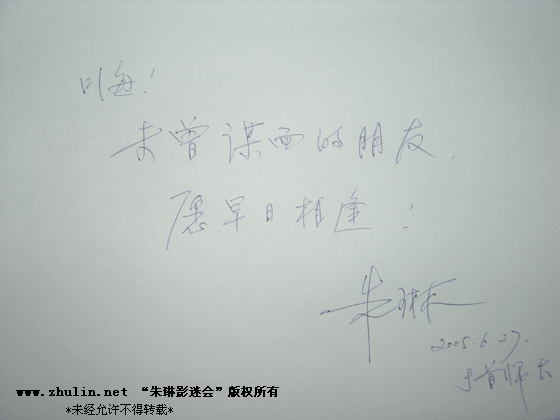 嗨！
未曾谋面的朋友，
愿早日相逢！
朱琳
2005.6.27.
于首师大
www.zhulin.net “朱琳影迷会”版权所有
*未经允许不得转载*